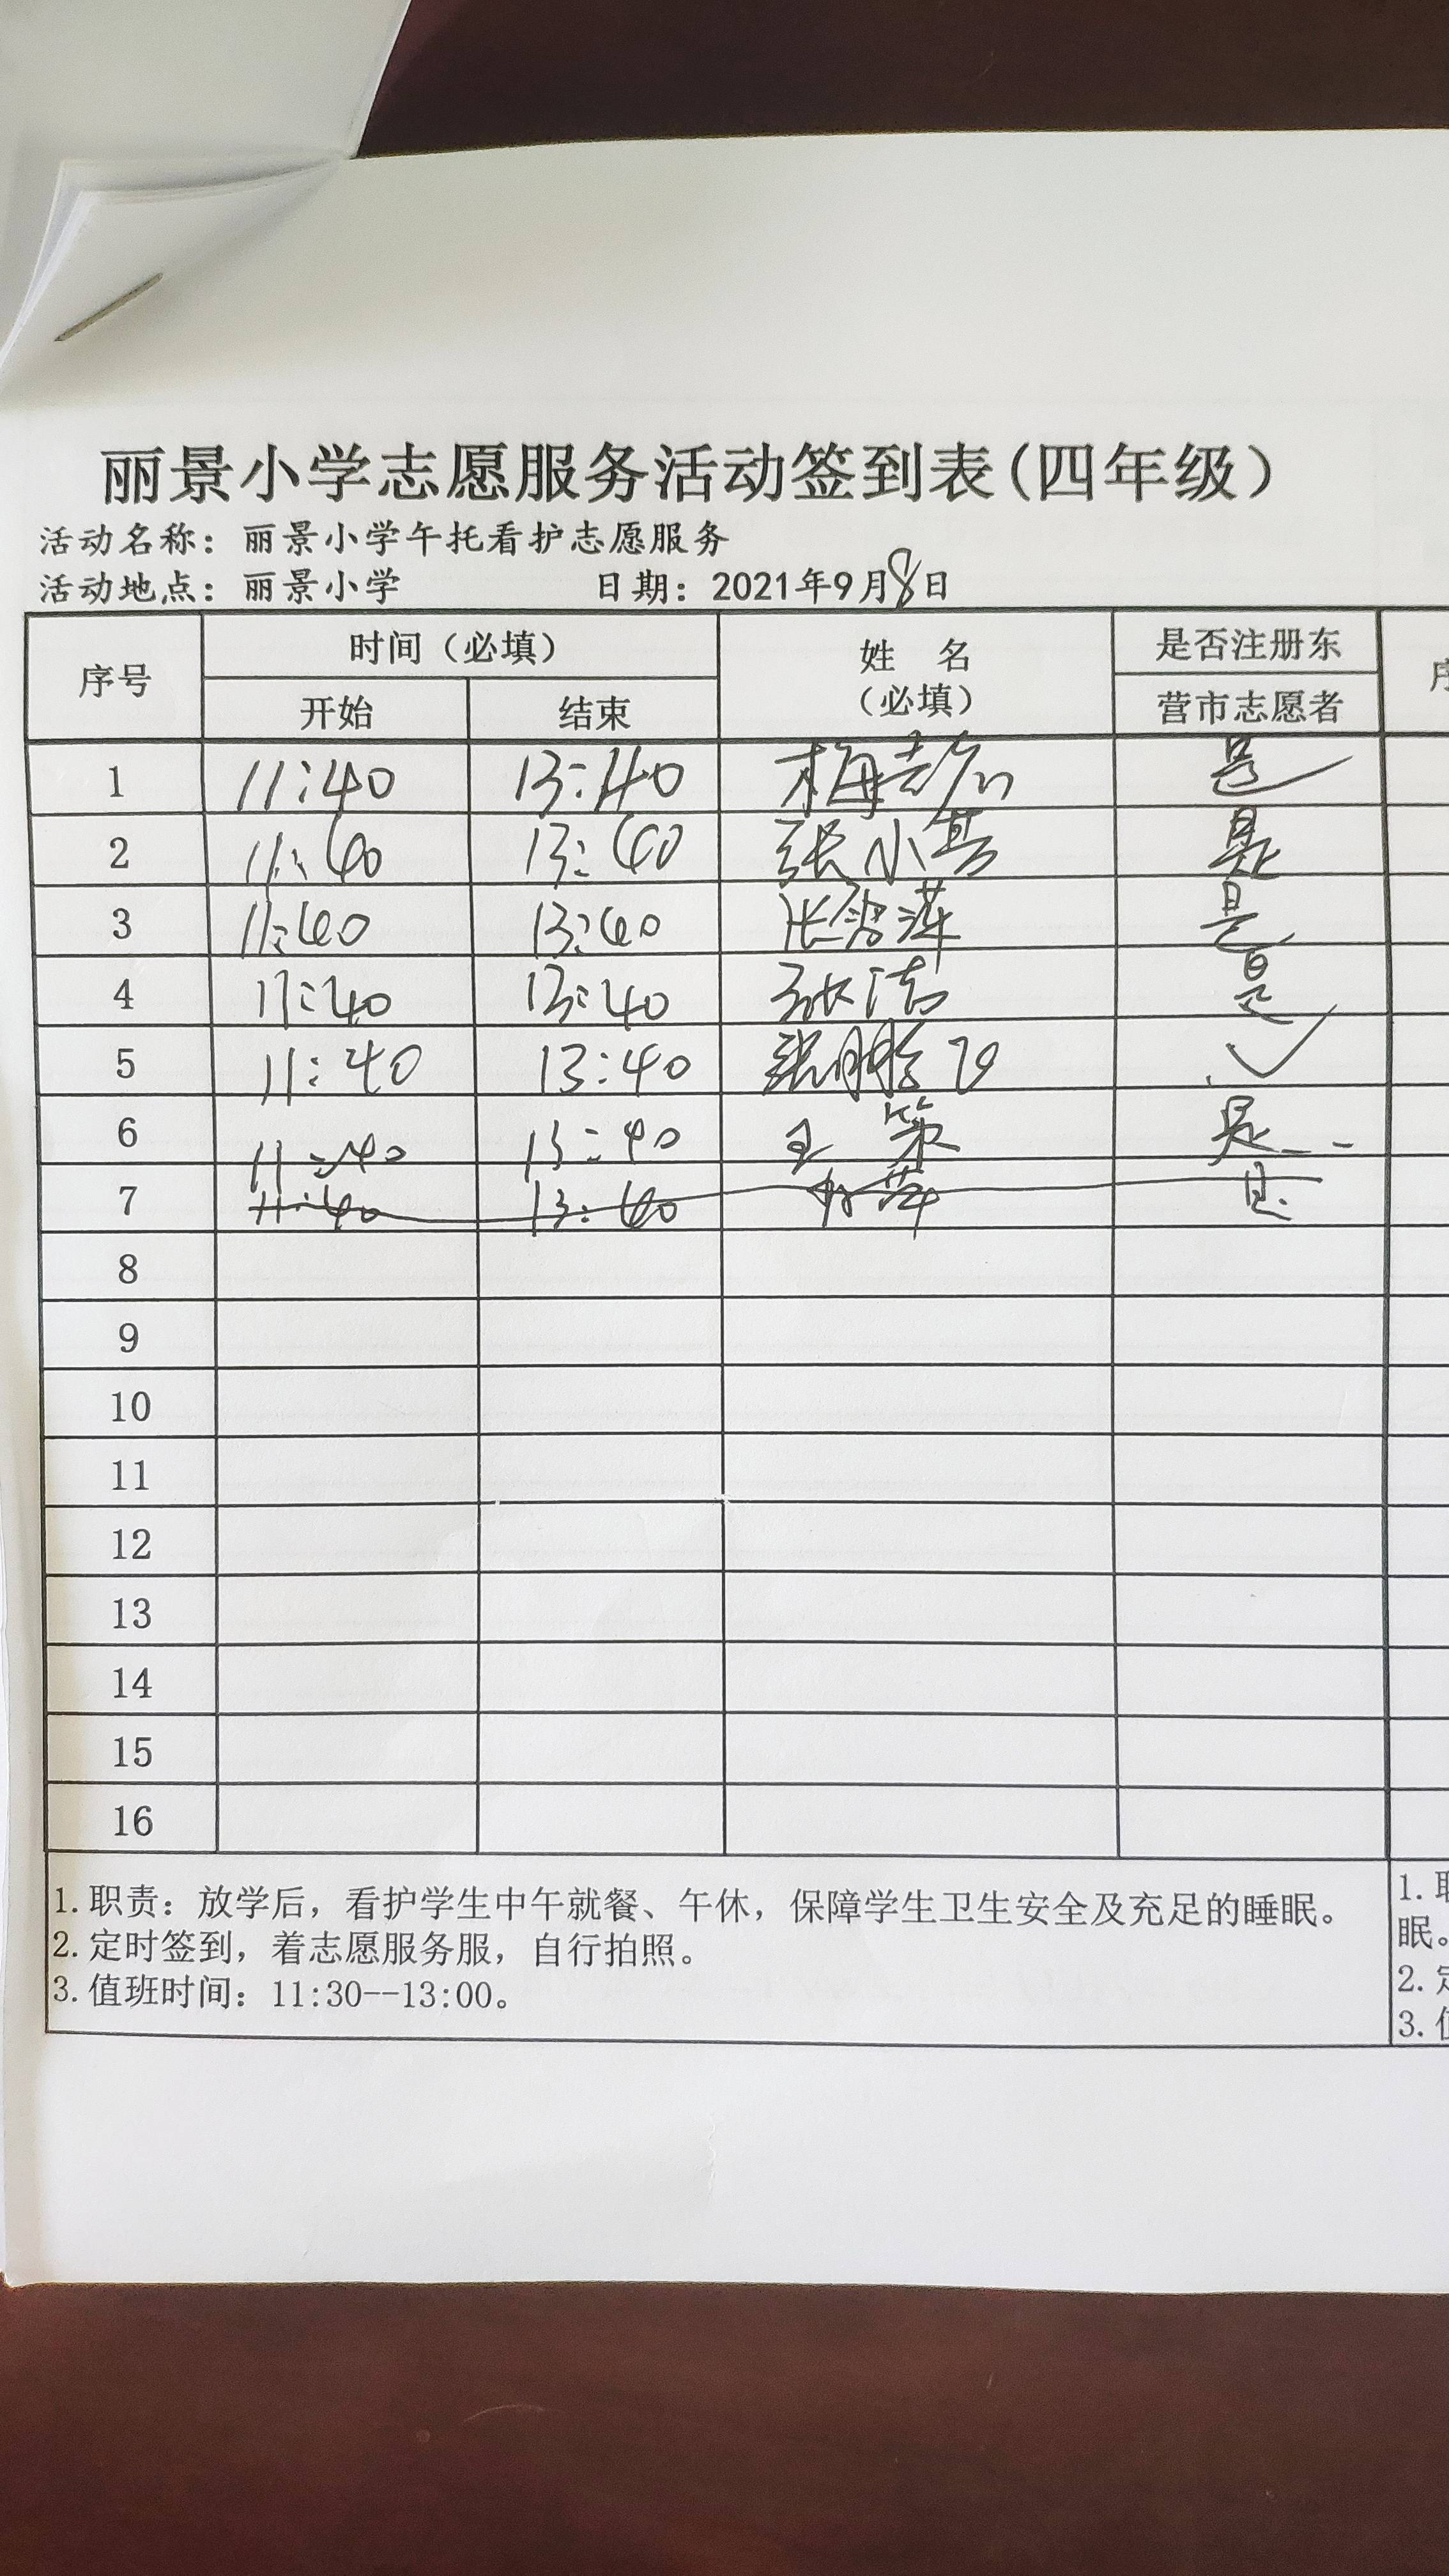 丽景小学志愿服务活动签到表(四年级)
活动名称：丽景小学午托看护志愿服务
活动地点：丽景小学 日期：2021年9月8日
序号 时间（必填） 姓 名 是否注册东 序
开始 结束 （必填） 营市志愿者
1 11:40 13:40 是
2 11:40 13:40 张小 是
3 11:40 13:40 张 萍 是
4 11:40 13:40 张洁 是
5 11:40 13:40 张鹏 ✓
6 11:40 13:40 王 策 是
7 11:40 13:40 萍 是
8
9
10
11
12
13
14
15
16
1.职责：放学后，看护学生中午就餐、午休，保障学生卫生安全及充足的睡眠。
2.定时签到，着志愿服务服，自行拍照。
3.值班时间：11:30--13:00。
1.职
眠。
2.定
3.值